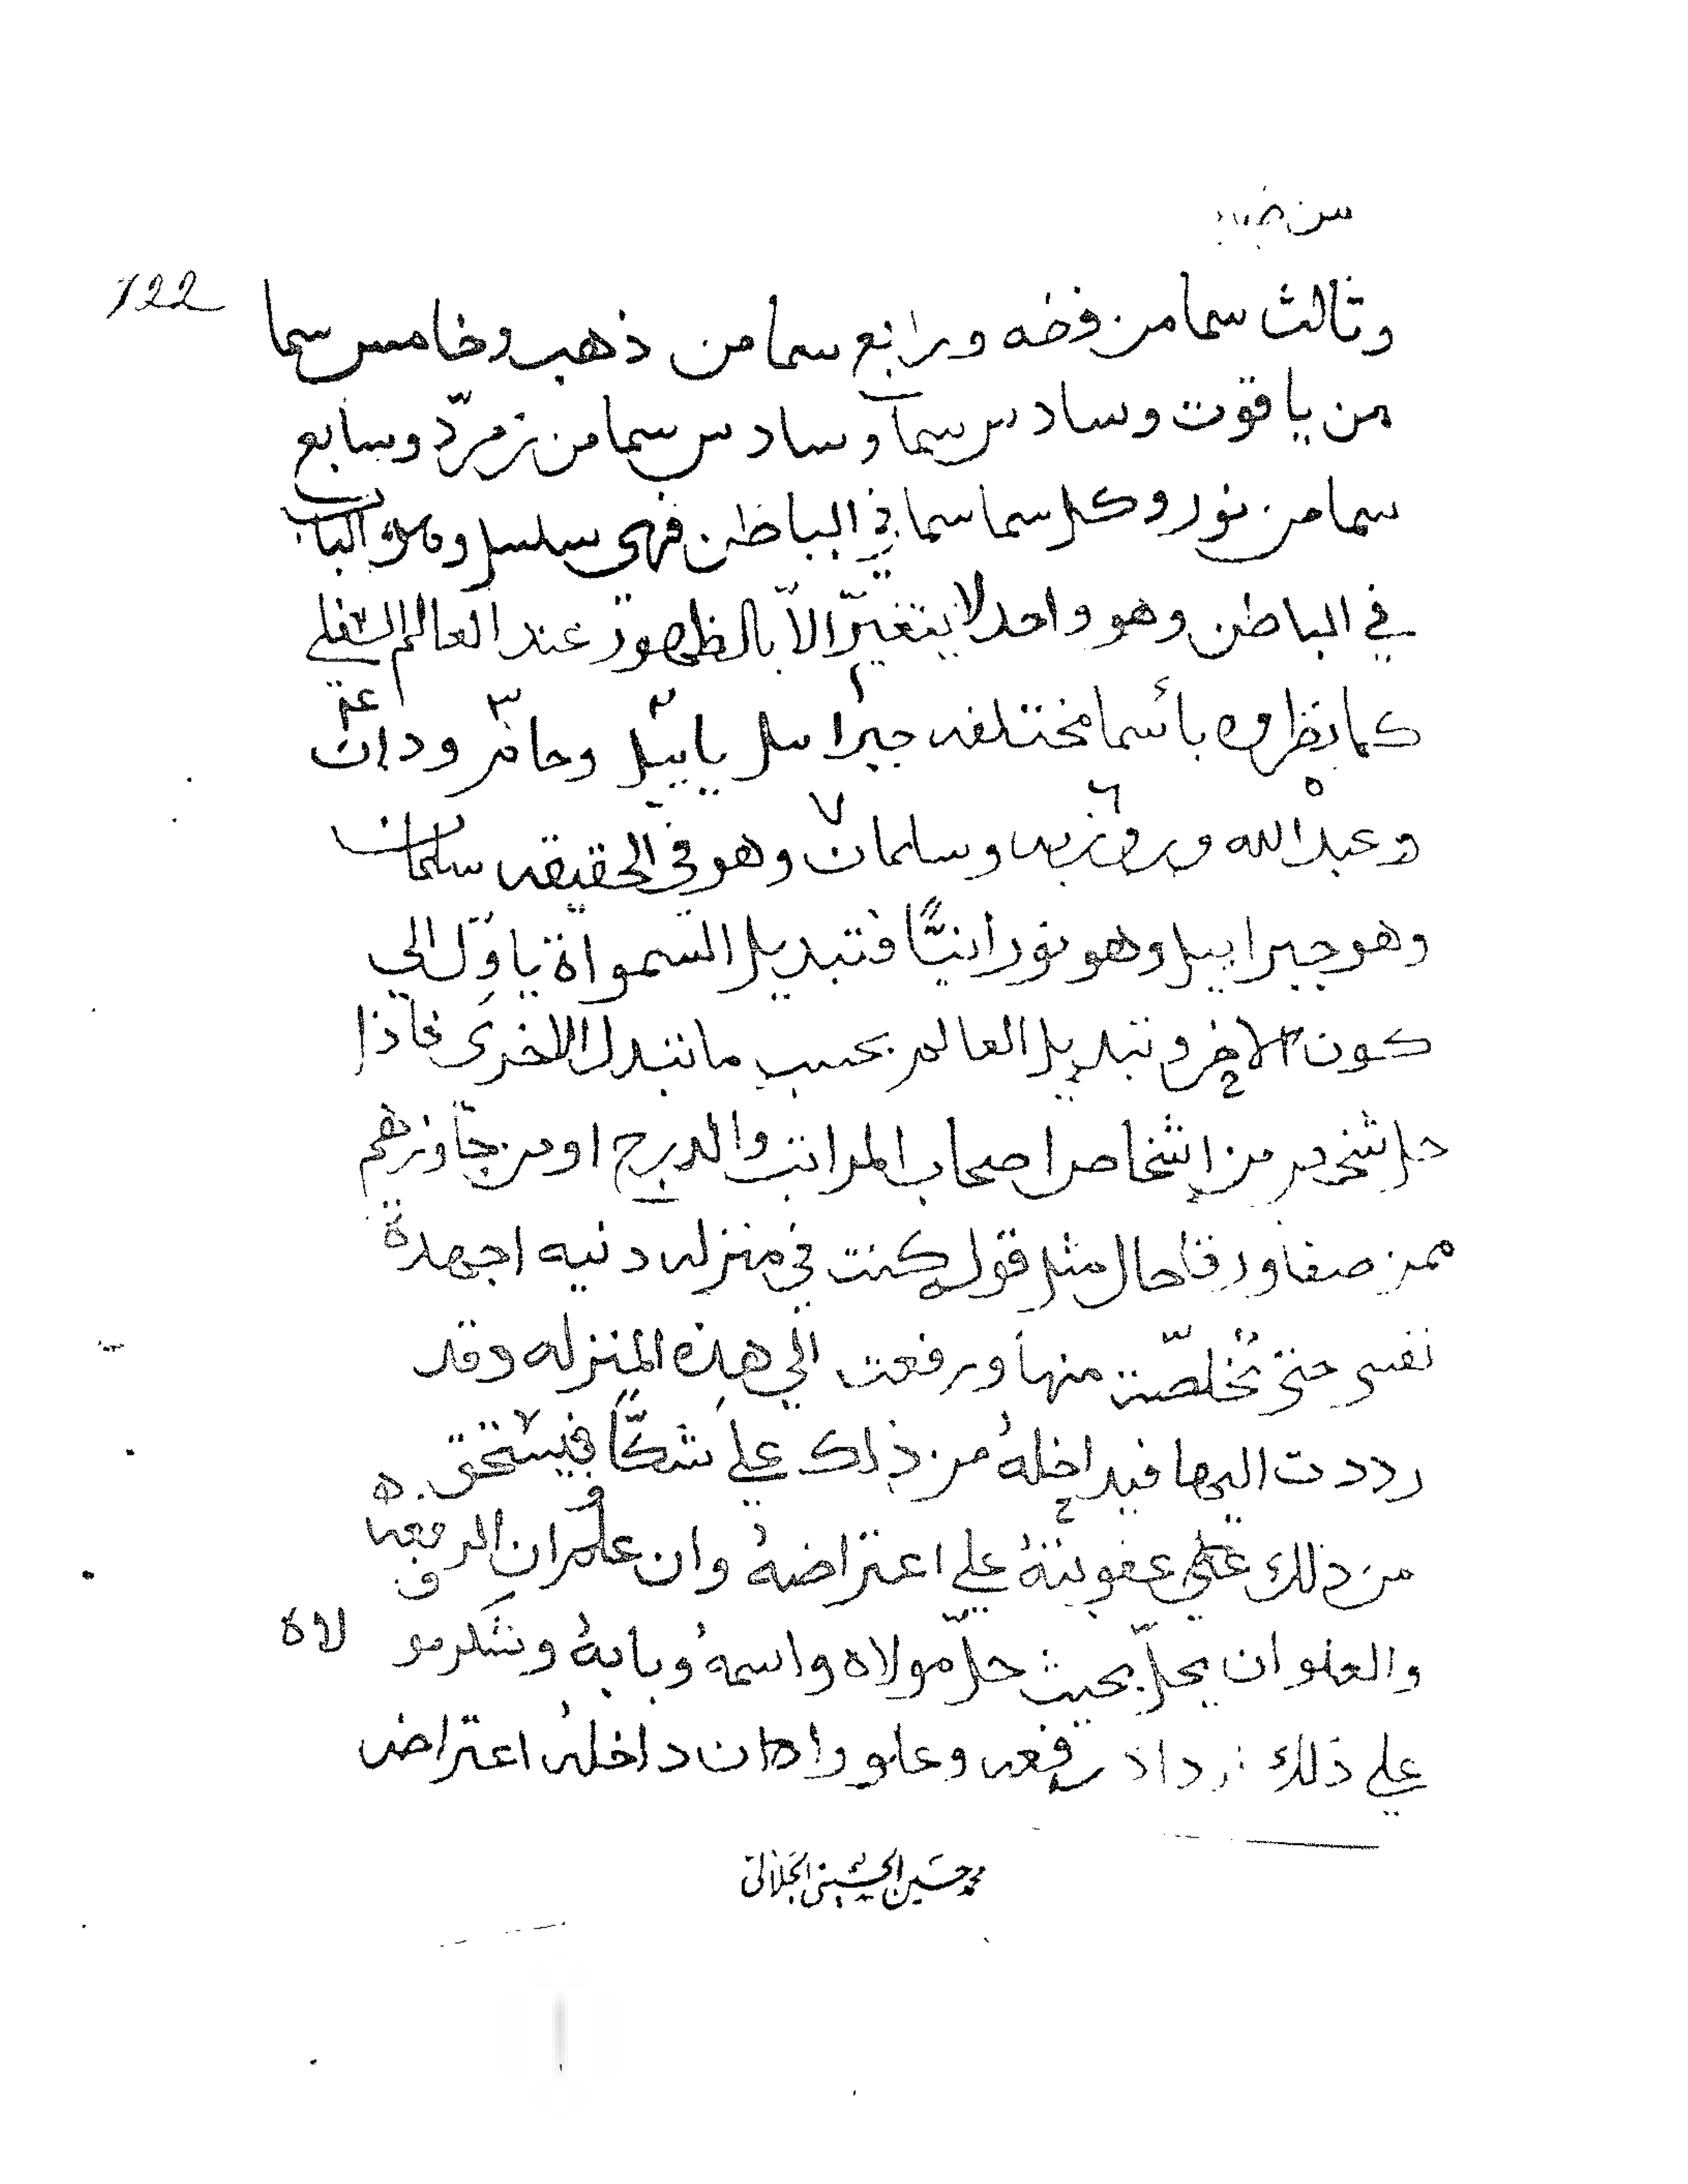 122
وثالث سما من فضه ورابع سما من ذهب وخامس سما
من ياقوت وسادس سما وسادس سما من زمرّد وسابع
سما من نور وكل سما سما في الباطن فهي سلسل وهو الباب
في الباطن وهو واحد لا يتغيّر الاّ بالظهور عند العالم السفلي
كما بأسما مختلفه جبرايل ياييل وحام ودان
وعبد الله وروزبه وسلمان وهو في الحقيقه سلمان
وهو جبراييل وهو نورانيًّا فتبديل السمواة ياوّل الي
كون الاخر وتبديل العالم بحسب ما تتبدل الاخرى فاذا
حل شخص من اشخاص اصحاب المراتب والدرج او من جاوزهم
ممن صفا ورقا حال مثل قول كنت في منزله دنيه اجهدة
نفسي حتى تخلصّت منها ورفعت الي هذه المنزله وقد
رددت اليها فيداخلهُ من ذلك علي شكًّا فيستحق
من ذلك علي عقوبتهُ علي اعتراضهُ وان علم ان الرفعه
والعلو ان يحلّ بحيث حلّ مولاه واسمهُ وبابهُ وشكر مولاه
علي ذلك رفعه وعلو وان داخلهُ اعتراض
محمد حسين الحسيني الجلالي